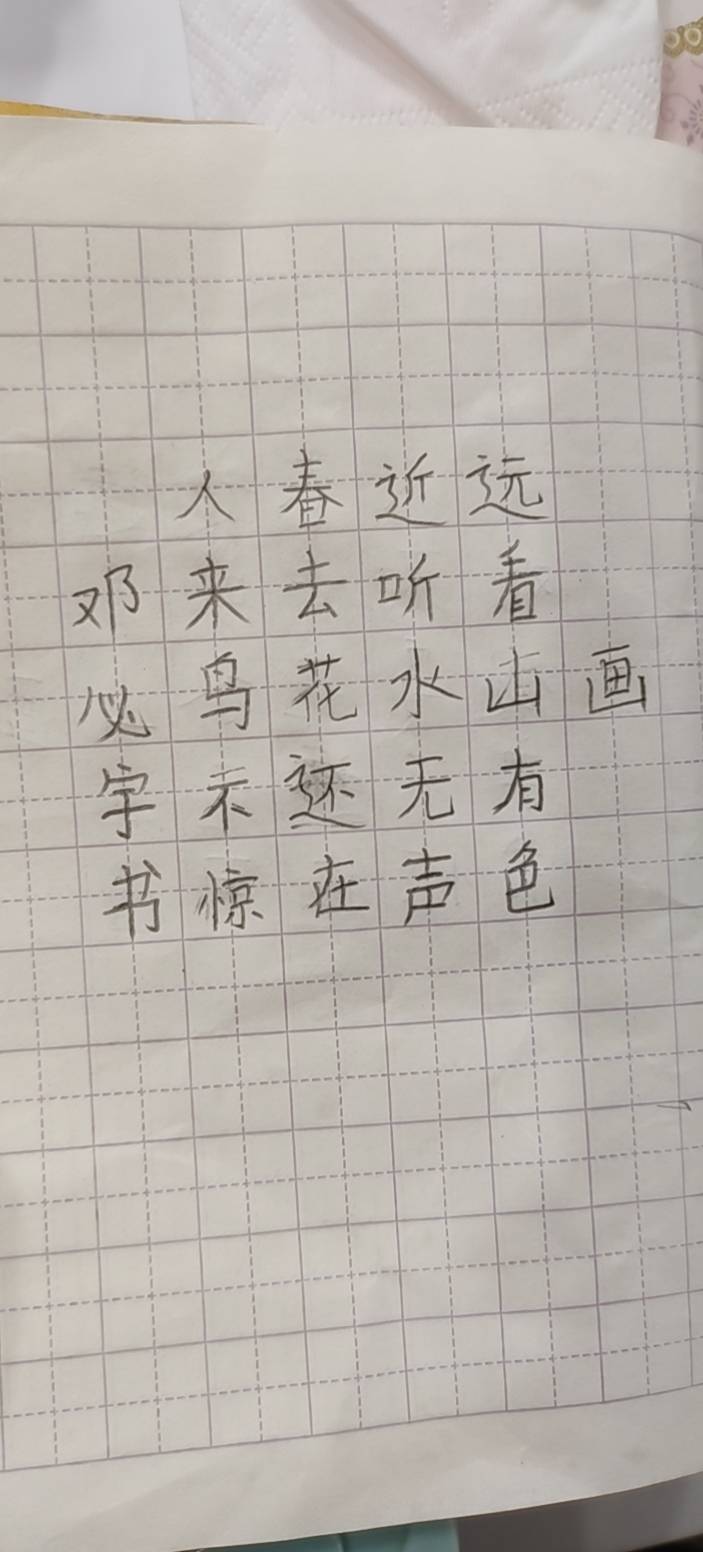 画
远看山有色
近听水无声
春去花还在
人来鸟不惊
邓必字书